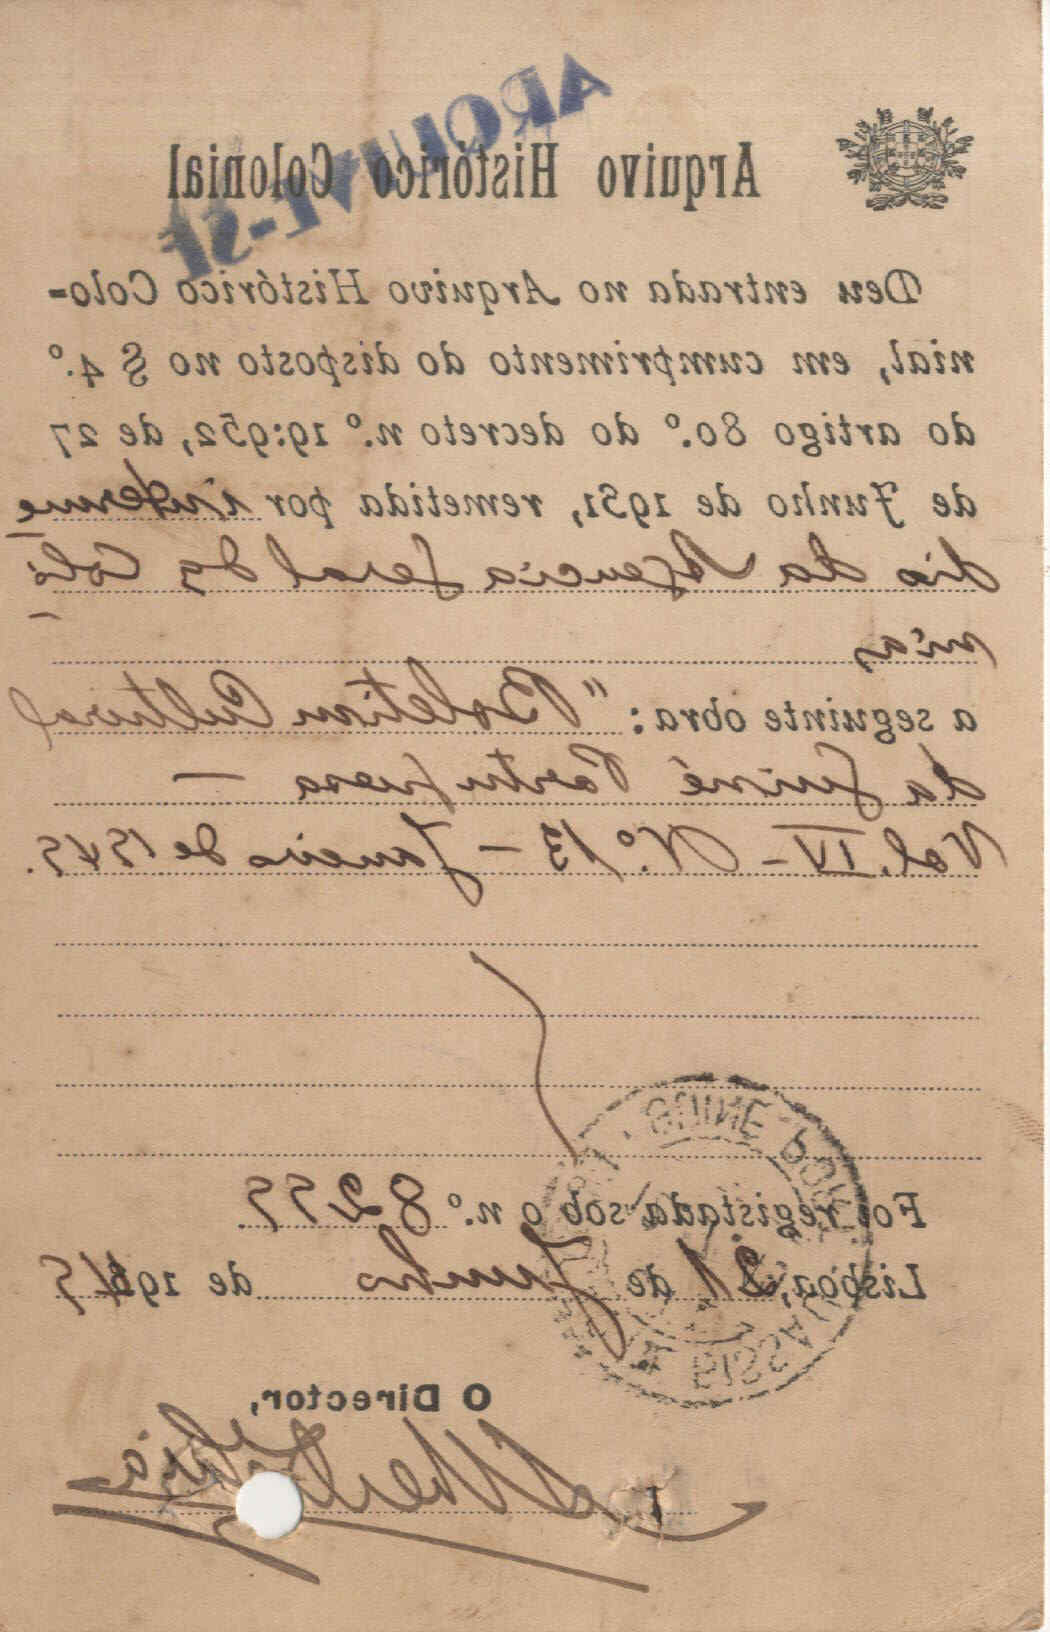 ARQUIVE-SE
Arquivo Histórico Colonial
Deu entrada no Arquivo Histórico Colo-
nial, em cumprimento do disposto no § 4.º
do artigo 80.º do decreto n.º 19:952, de 27
de Junho de 1931, remetida por interme
dio da Agencia Geral das Coló
nias
a seguinte obra: "Boletim Cultural
da Guiné Portuguesa —
Vol. IV - N.º 13 - Janeiro de 1945.
Foi registada sob o n.º 8255
Lisboa, 21 de Junho de 1945
O Director,
GUINÉ
BISSAU